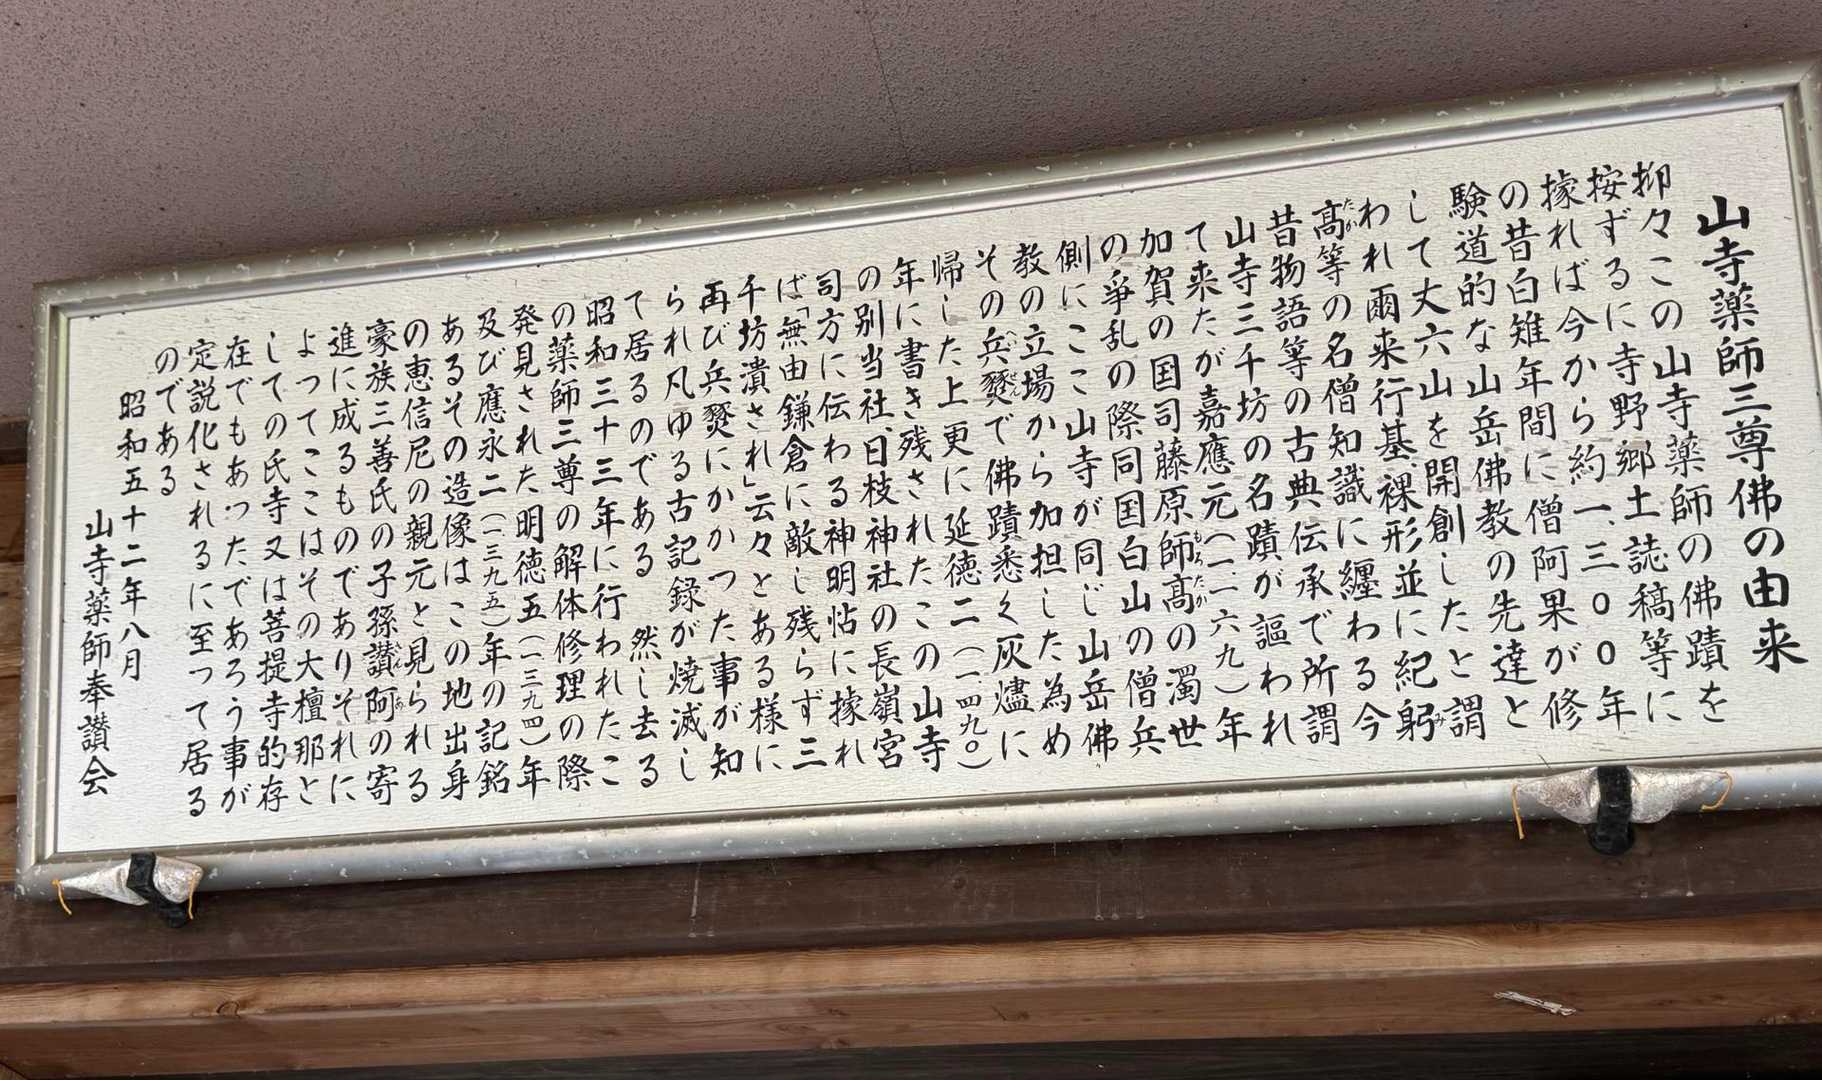 山寺薬師三尊佛の由来
抑々この山寺薬師の佛蹟を
按ずるに寺野郷土誌稿等に
據れば今から約一、三〇〇年
の昔白雉年間に僧阿果が修
験道的な山岳佛教の先達と
して丈六山を開創したと謂
われ爾来行基裸形並に紀躬み
高たか等の名僧知識に纏わる今
昔物語等の古典伝承で所謂
山寺三千坊の名蹟が謳われ
て来たが嘉應元(一一六九)年
加賀の国司藤原師高もろたかの濁世
の爭乱の際同国白山の僧兵
側にここ山寺が同じ山岳佛
教の立場から加担した為め
その兵燹へいせんで佛蹟悉く灰燼に
帰した上更に延徳二(一四九〇)
年に書き残されたこの山寺
の別当社、日枝神社の長嶺宮
司方に伝わる神明帖に據れ
ば「無由鎌倉に敵し残らず三
千坊潰され」云々とある様に
再び兵燹にかかつた事が知
られ凡ゆる古記録が焼滅し
て居るのである 然し去る
昭和三十三年に行われたこ
の薬師三尊の解体修理の際
発見された明徳五(一三九四)年
及び應永二(一三九五)年の記銘
あるその造像はこの地出身
の恵信尼の親元と見られる
豪族三善氏の子孫讃阿さんあの寄
進に成るものでありそれに
よってここはその大檀那と
しての氏寺又は菩提寺的存
在でもあったであろう事が
定説化されるに至って居る
のである
昭和五十二年八月
山寺薬師奉讃会